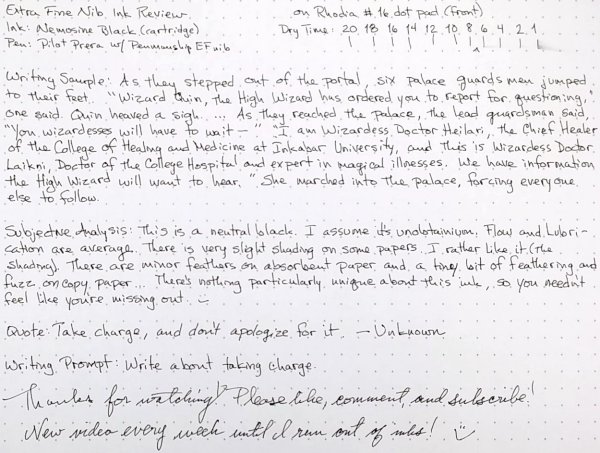 Extra Fine Nib Ink Review
on Rhodia #16 dot pad (front)
Ink: Nemosine Black (cartridge)
Dry Time: 20 18 16 14 12 10 8 6 4 2 1
Pen: Pilot Prera w/ Penmanship EF nib
Writing Sample: As they stepped out of the portal, six palace guardsmen jumped
to their feet. "Wizard Quin, the High Wizard has ordered you to report for questioning,"
one said. Quin heaved a sigh. ... As they reached the palace, the lead guardsman said,
"You wizardesses will have to wait—" "I am Wizardess Doctor Heilari, the Chief Healer
of the College of Healing and Medicine at Inkabar University, and this is Wizardess Doctor
Laikni, Doctor of the College Hospital and expert in magical illnesses. We have information
the High Wizard will want to hear." She marched into the palace, forcing everyone
else to follow.
Subjective Analysis: This is a neutral black. I assume it's unobtainium. Flow and Lubri-
cation are average. There is very slight shading on some papers. I rather like it (the
shading). There are minor feathers on absorbent paper and a tiny bit of feathering and
fuzz on copy paper... There's nothing particularly unique about this ink, so you needn't
feel like you're missing out. :)
Quote: Take charge, and don't apologize for it. —Unknown
Writing Prompt: Write about taking charge.
Thanks for watching! Please like, comment, and subscribe!
New video every week until I run out of inks! :)